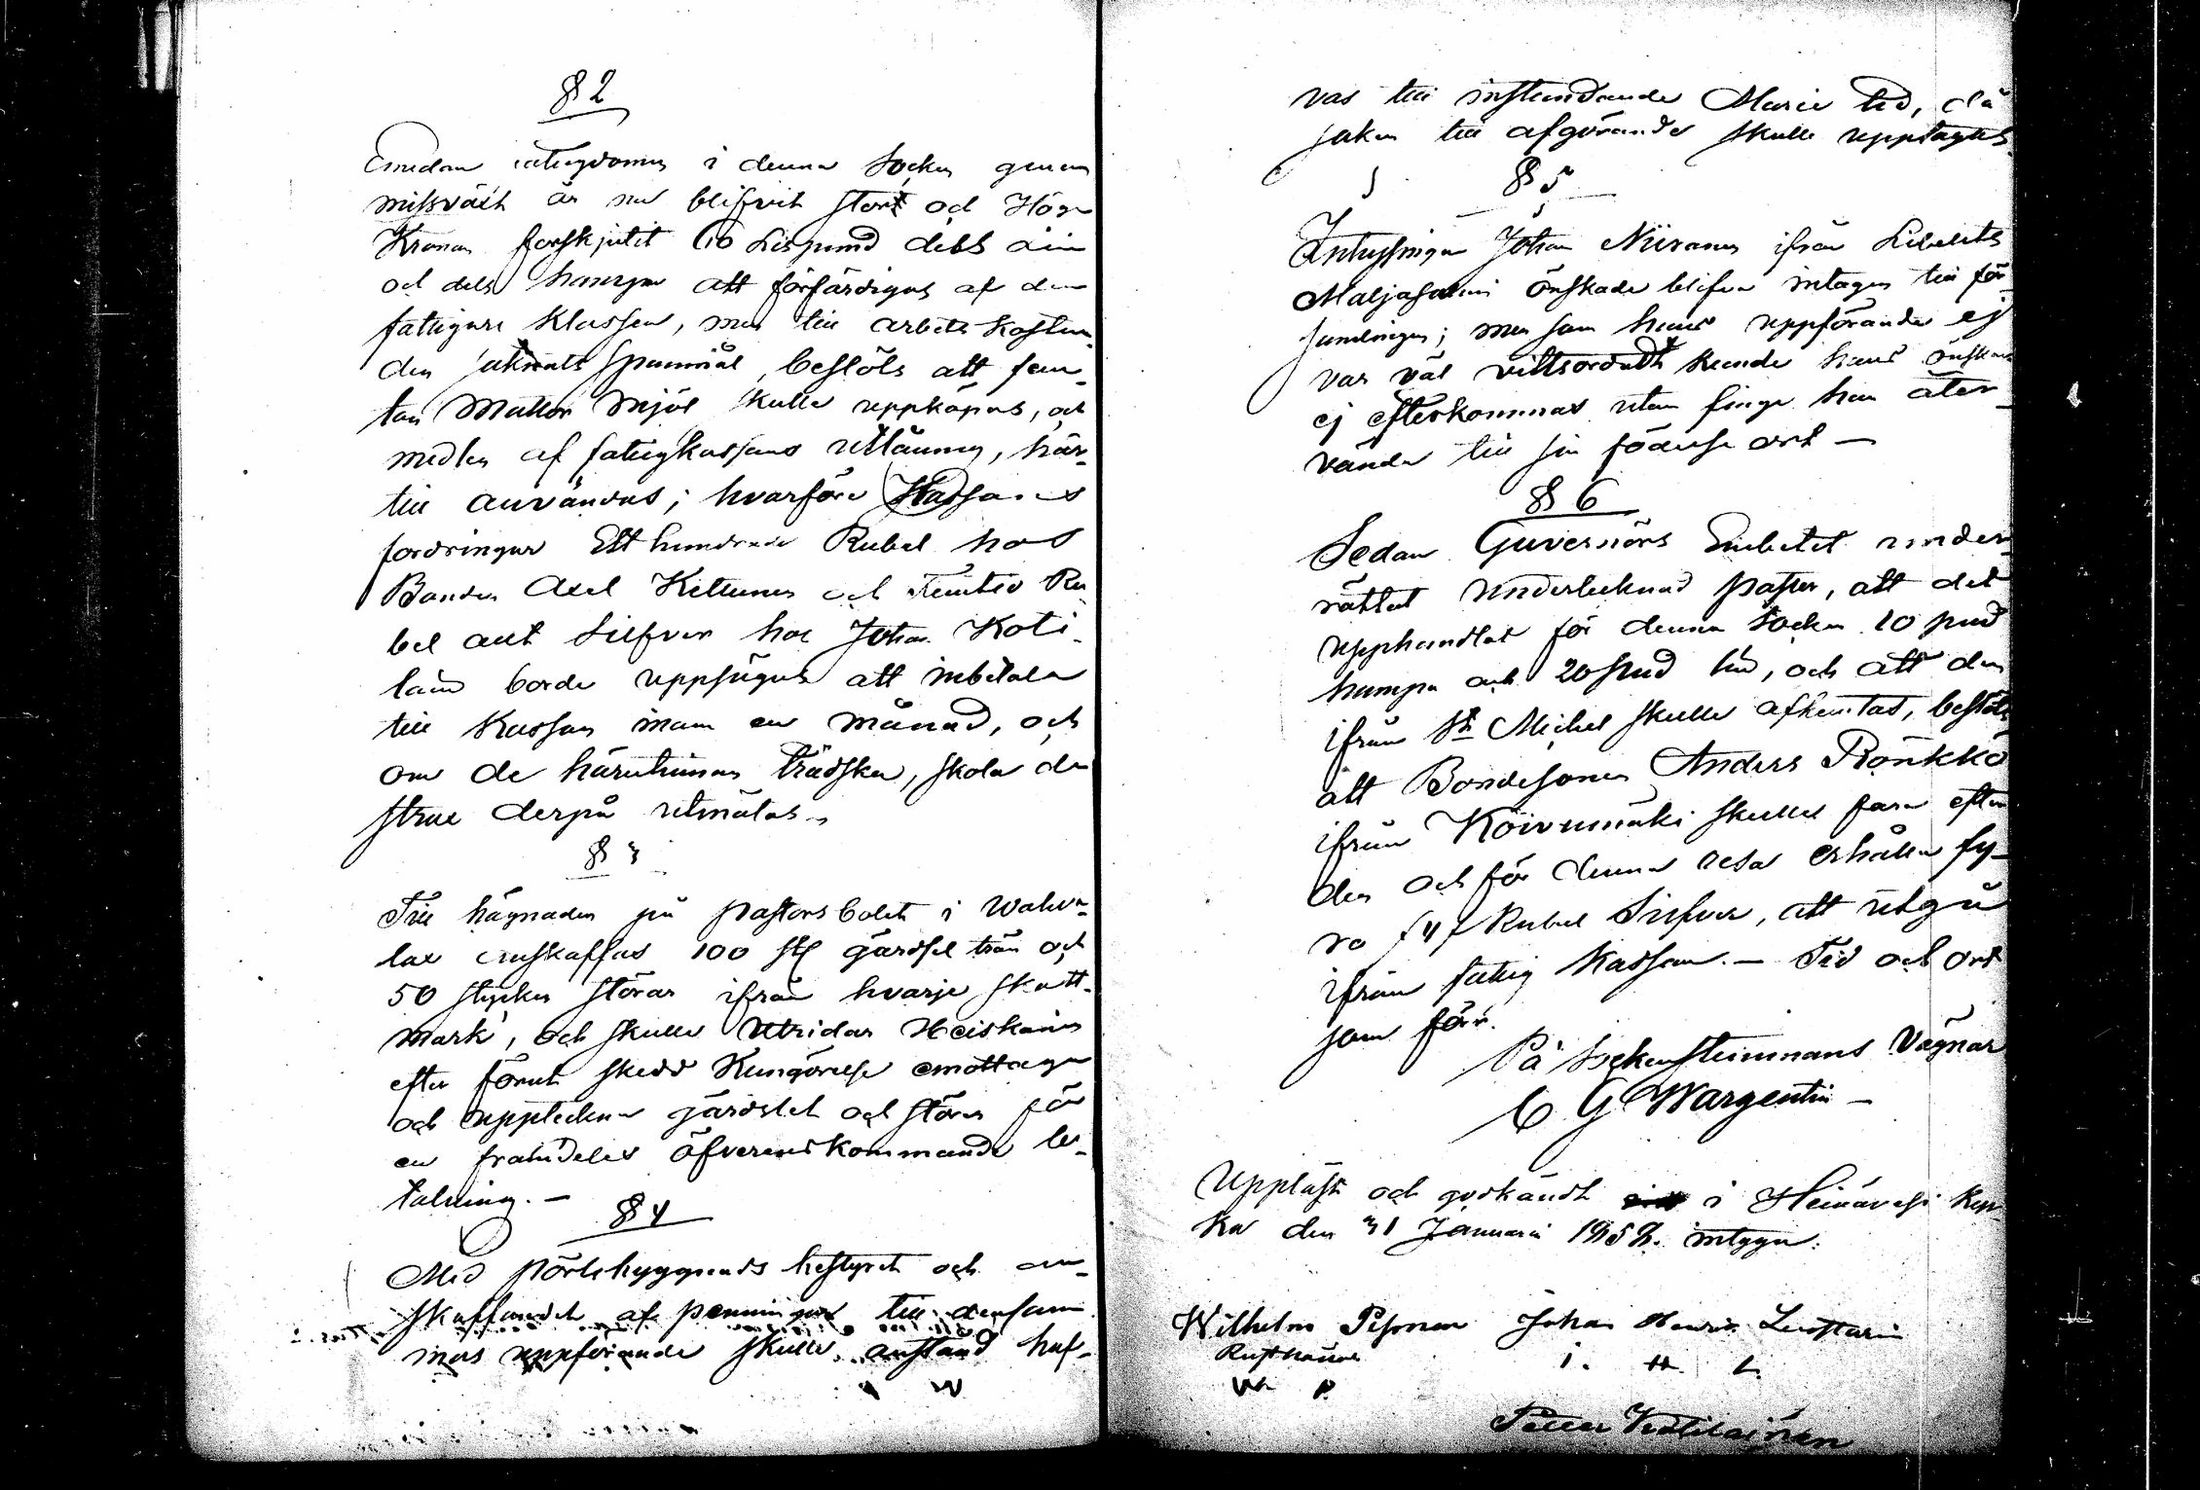 § 2
Emedan fattigdomen i denna Socken genom
missväxt är nu blifvit stort och Höga
Kronan forskjutit 60 Lispund dels Lin
och dels hampa att förfärdigas af den
fattigare Klassen, men till arbets kostna-
den saknats Spannmål, beslöts att fem-
ton Mattor Mjöl skulle uppköpas, och
medlen af fattigkassans utlåning, här-
till användas; hvarföre Kassans
fordringar Ett hundrade Rubel hos
Bonden Axel Kettunen och Femtio Ru-
bel allt Silfver hos Johan Koti-
lain borde uppsägas att inbetala
till Kassan inom en månad, och
om de härutinnan trädska, skola de
strax derpå utmätas.
§ 3
Till hägnaden på pastorsbolet i Wahva-
lax anskaffas 100 st gärdsel trän och
50 stycken störar ifrån hvarje skatt-
mark, och skulle Utridar Heiskanen
efter förut skedd Kungörelse emottaga
och uppteckna gärdslet och stören för
en framdeles öfverenskommande be-
talning. —
§ 4
Med pörtebyggnads bestyret och an-
skaffandet af penningar till densam-
mas uppförande skulle anstånd haf-
W
vas till instundande Marie tid, då
saken till afgörande skulle upptagas.
§ 5
Inhysingen Johan Niiranen ifrån Libelits
Maljasalmi önskade blifva intagen till för-
samlingen; men som hans uppförande ej
var väl vittsordadt kunde hans önskan
ej efterkommas utan finge han åter-
vända till sin födelse ort —
§ 6
Sedan Guvernörs Embetet under-
rättat undertecknad pastor, att det
upphandlat för denna Socken 10 pud
hampa och 20 pud lin, och att den
ifrån St Michel skulle afhemtas, beslöts
att Bondesonen Anders Rönkkö
ifrån Koivumäki skulle fara efter
den och för denna resa erhålla fy-
ra /4/ Rubel Silfver, att utgå
ifrån fattig Kassan. — Tid och ort
som förr.
På Sockenstämmans Vägnar
C G Wargentin —
Uppläst och godkändt i Heinävesi kyr-
ka den 31 Januari 1858. intyga:
Wilhelm Pesonen Johan Henric Leustarin
Rusthållare J. H. L.
W P
Petter Kotilainen